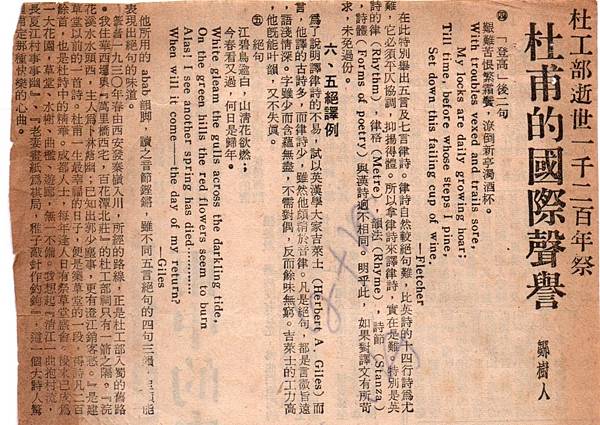 杜工部逝世一千二百年祭
杜甫的國際聲譽
鄒樹人
㈣「登高」後二句
艱難苦恨繁霜鬢,潦倒新亭濁酒杯。
With troubles vexed and trails sore,
My locks are daily growing hoar;
Till time, before whose steps I pine,
Set down this failing cup of wine,
—Fletcher
在此特別舉出五言及七言律詩。律詩自然較絕句難,比英詩的十四行詩爲尤
難,它必須平仄協調,抑揚得體。所以拿律詩來譯律詩,實在是難。特別是英
詩的律(Rhythm),律格(Metre),韻法(Rhyme),詩節(Stanza)
詩體(Forms of poetry)與漢詩逈不相同。明乎此,如果對譯文有所苛
求,未免過份。
六、五絕譯例
爲了說明譯律詩的不易,試以英漢學大家吉萊士(Herbert A. Giles)而
論,他譯的古詩多,而律詩少,雖然他頗精於音律。凡是絕句,都是言微旨遠
,語淺情深。字雖少而含蘊無盡,不需對偶,反而餘味無窮。吉萊士的工力高
,他旣能叶韻,又不失眞。
㈤ 絕句
江碧鳥逾白,山靑花欲燃;
今春看又過,何日是歸年。
White gleam the gulls across the darkling tide,
On the green hills the red flowers seem to burn
Alas! I see another spring has died…………
When will it come——the day of my return?
—Giles
他所用的 abab 韻脚,讀之音節鏗鏘,雖不同五言絕句的四句三韻,能
表現出絕句的味道。
筆者一九三〇年春由西安發秦嶺入川,所經的路線,正是杜工部入蜀的舊路
。我住華西壩與「萬里橋西宅,百花潭北莊」的杜工部祠只有一箭之隔。「浣
花溪水水頭西,主人爲卜林塘幽,已知出郭少塵事,更有澄江銷客愁。」是建
草堂以前的一首詩。杜甫一生最幸福的日子,便是築草堂的一段,得詩凡二百
餘首,也是杜詩中的精華。成都人士,每年逢人日有祭草堂盛會,後來已成爲
一大花園,草堂、水榭、曲檻、遊廊,無一不備。我想起「淸江一曲抱村流,
長夏江村事事幽。」「老妻畫紙爲棋局,稚子敲針作釣鉤」,這個大詩人
甫定那種快樂的心曲。